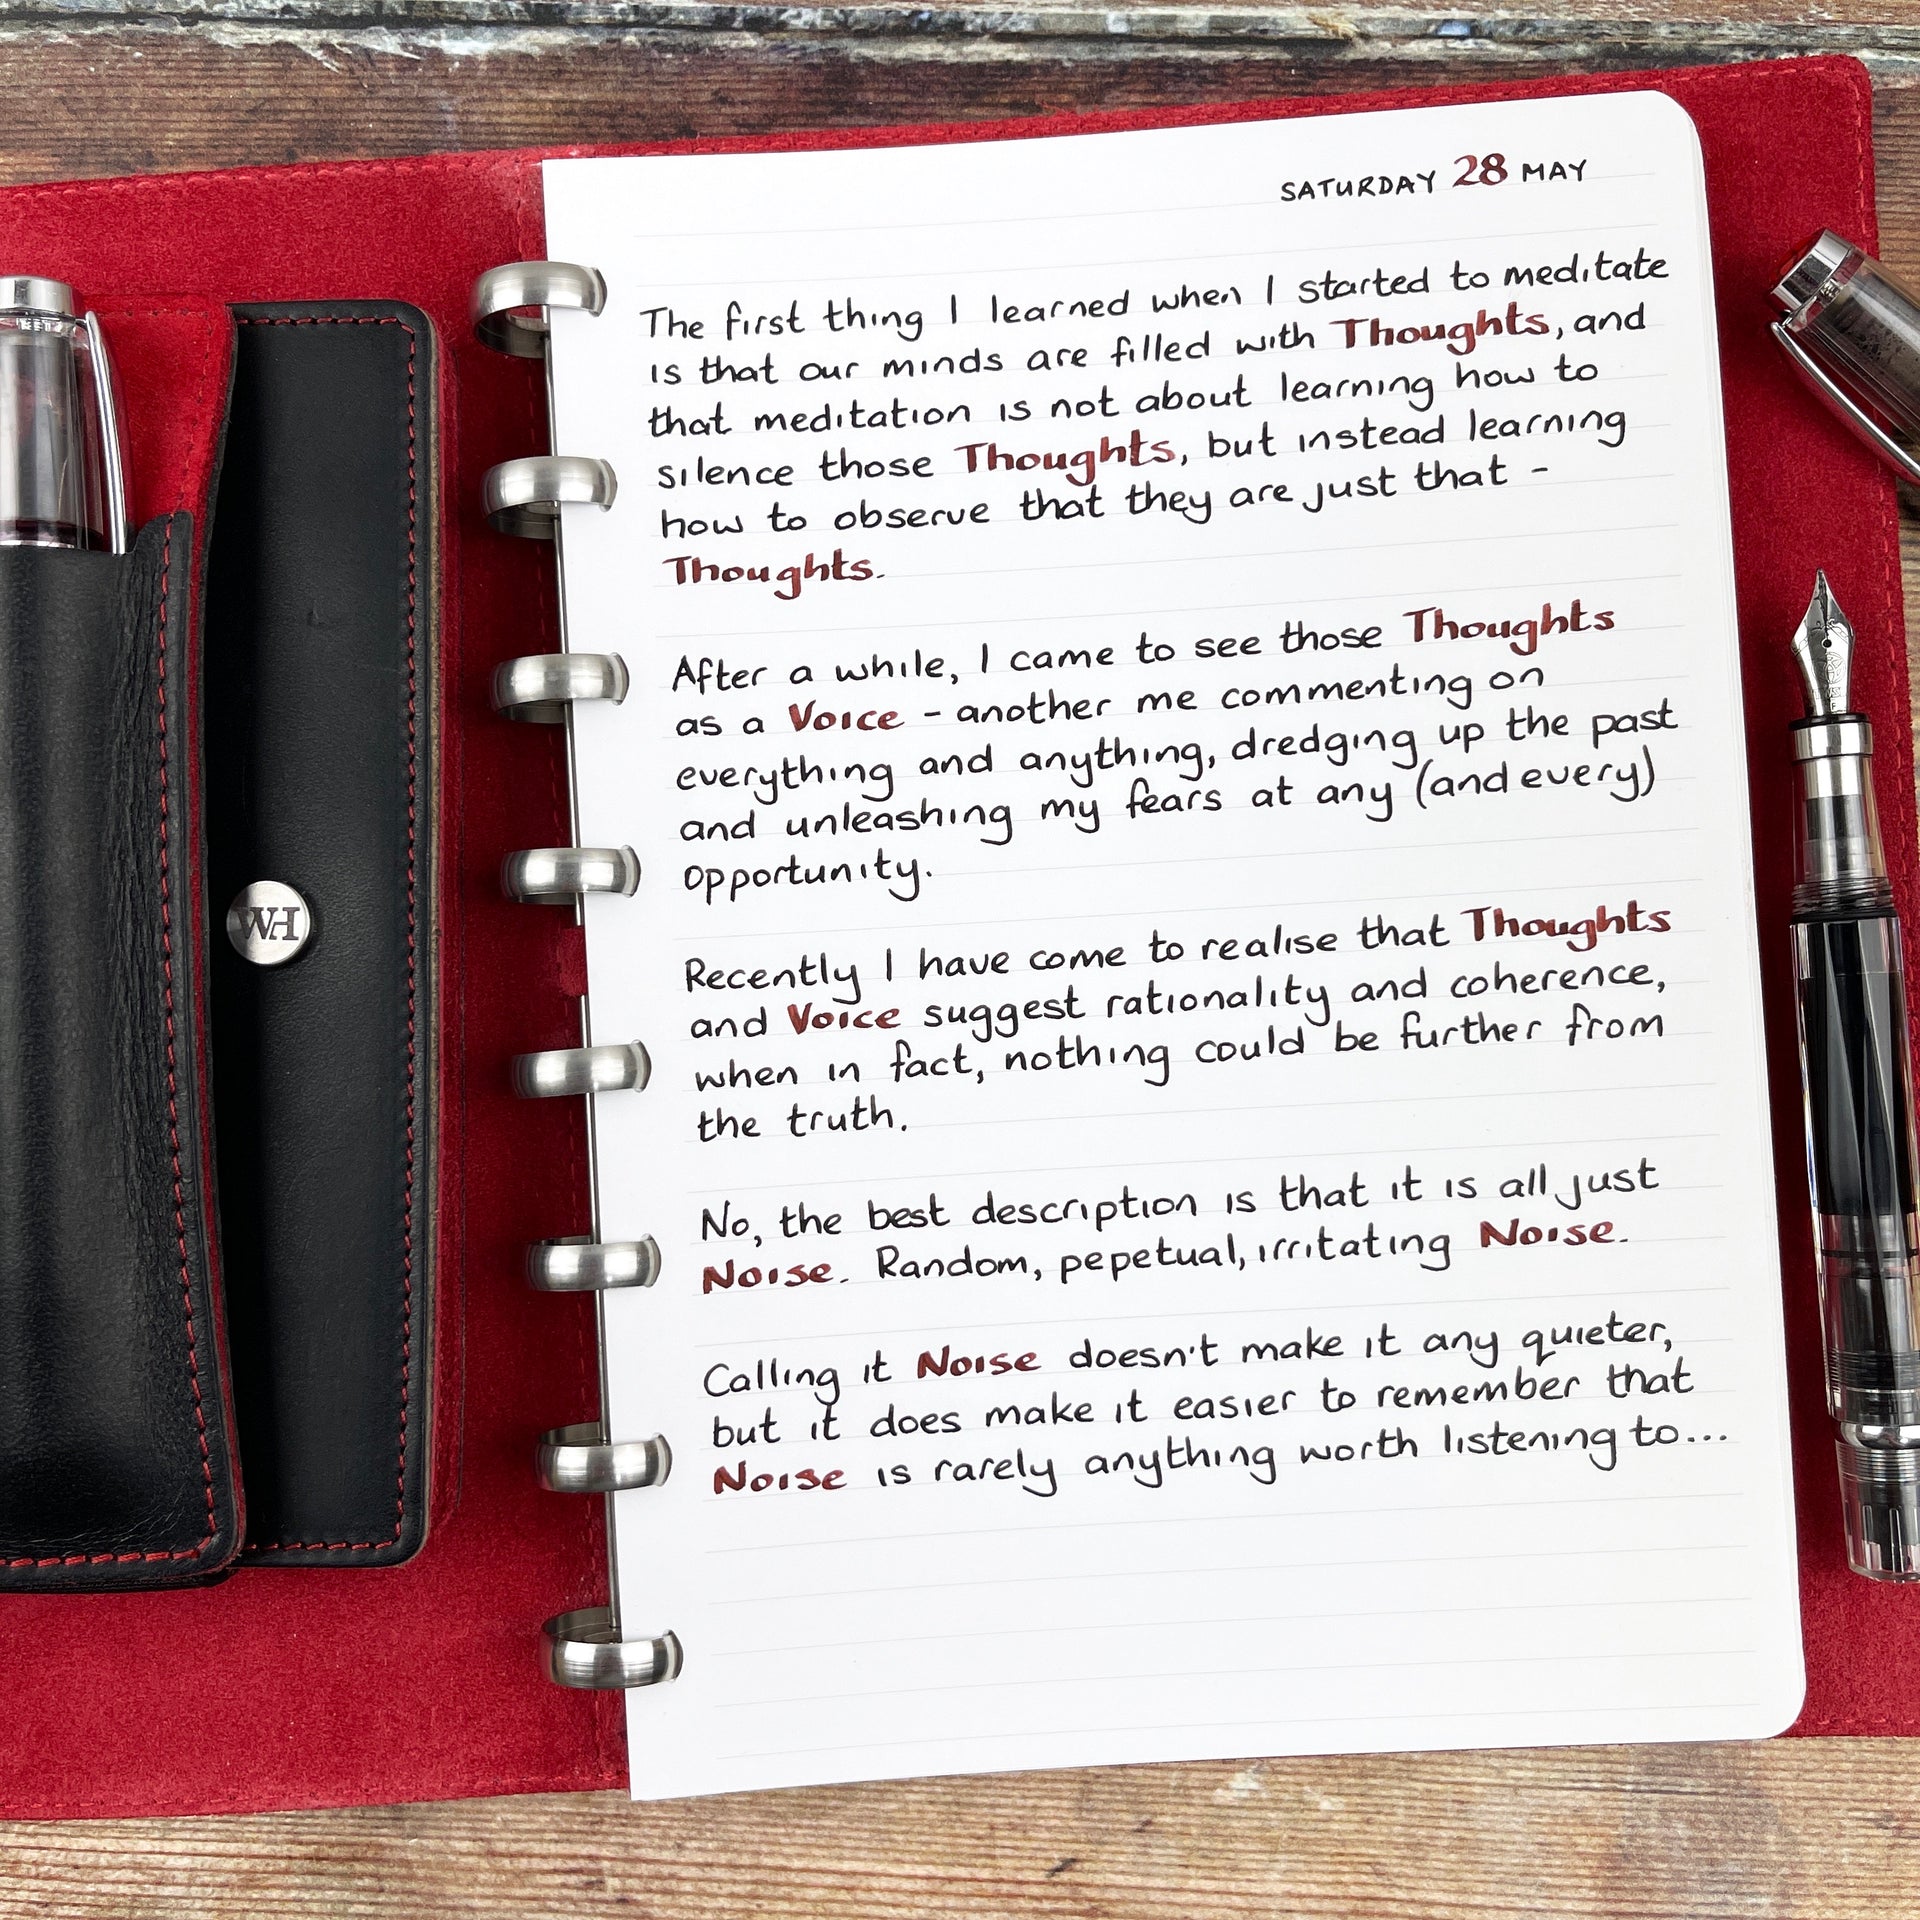 SATURDAY 28 MAY
The first thing I learned when I started to meditate
is that our minds are filled with Thoughts, and
that meditation is not about learning how to
silence those Thoughts, but instead learning
how to observe that they are just that -
Thoughts.
After a while, I came to see those Thoughts
as a Voice - another me commenting on
everything and anything, dredging up the past
and unleashing my fears at any (and every)
opportunity.
Recently I have come to realise that Thoughts
and Voice suggest rationality and coherence,
when in fact, nothing could be further from
the truth.
No, the best description is that it is all just
Noise. Random, pepetual, irritating Noise.
Calling it Noise doesn't make it any quieter,
but it does make it easier to remember that
Noise is rarely anything worth listening to...
WH